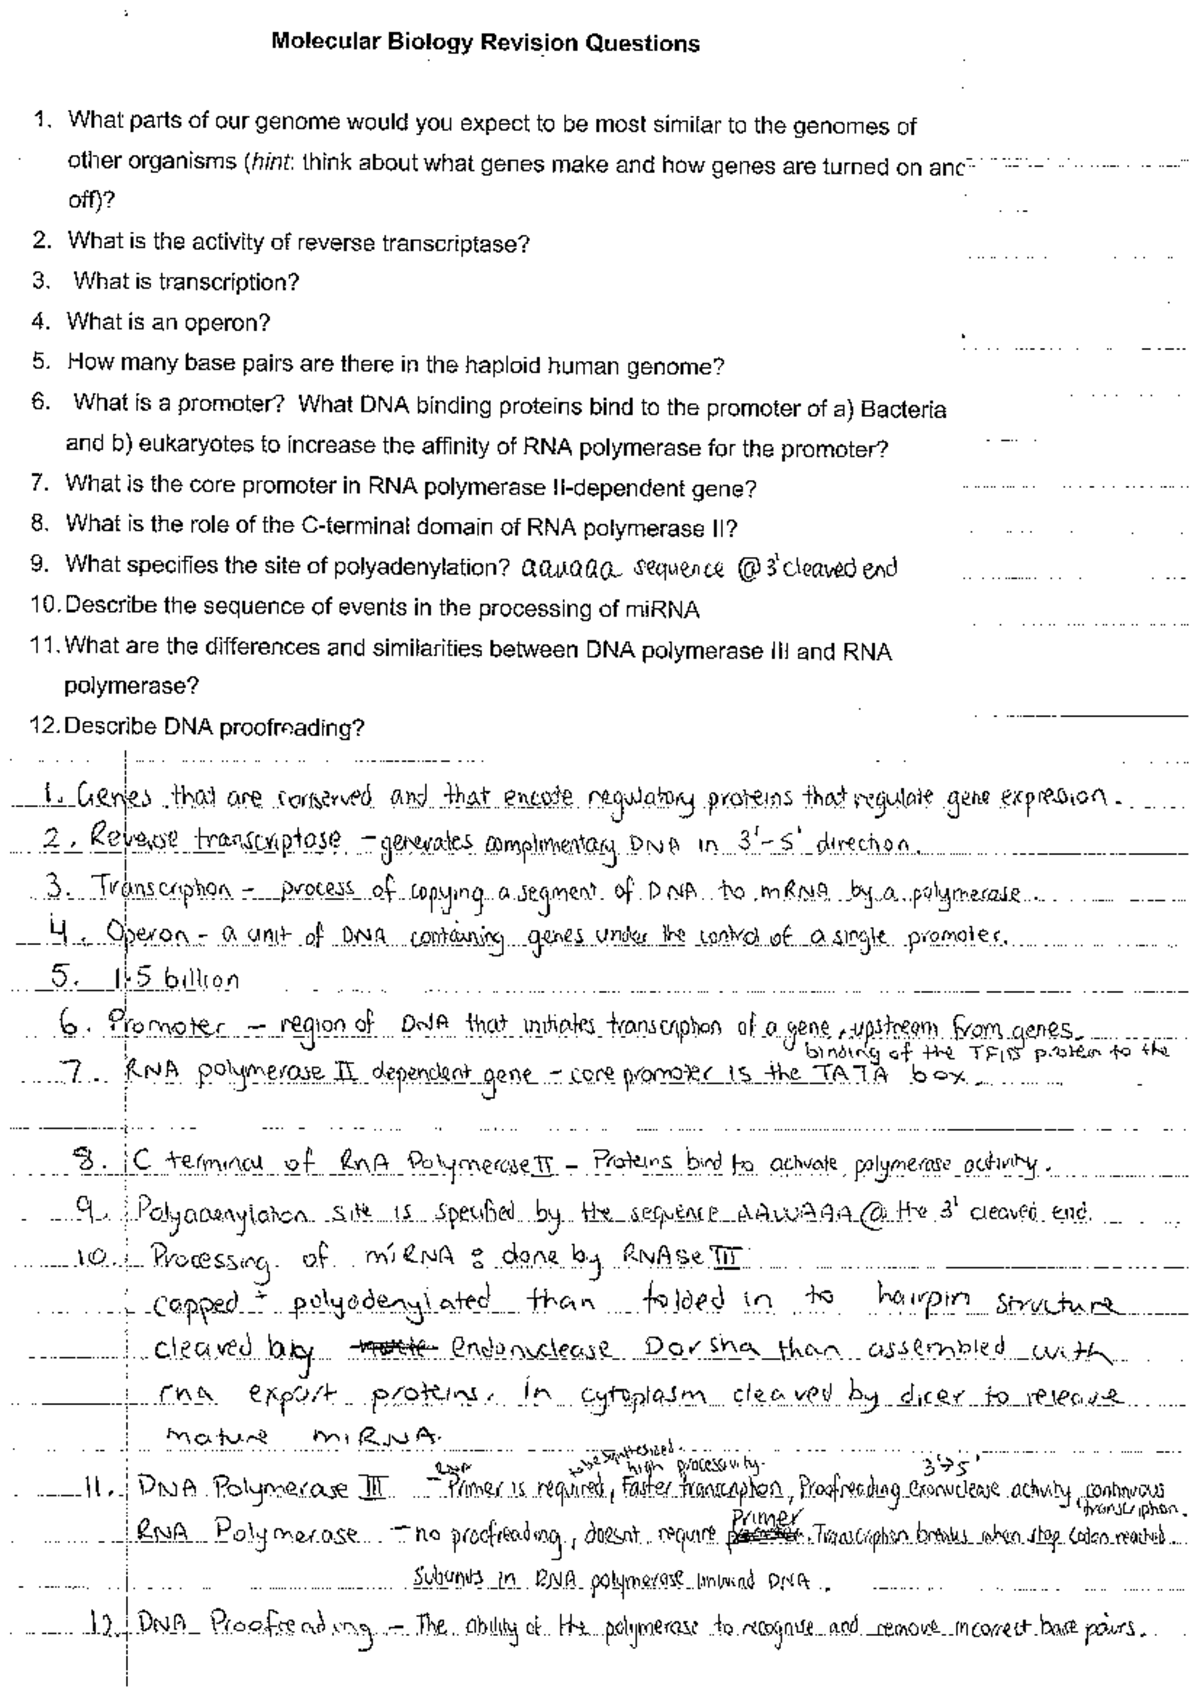 Molecular Biology Revision Questions
1. What parts of our genome would you expect to be most similar to the genomes of
other organisms (hint: think about what genes make and how genes are turned on and
off)?
2. What is the activity of reverse transcriptase?
3. What is transcription?
4. What is an operon?
5. How many base pairs are there in the haploid human genome?
6. What is a promoter? What DNA binding proteins bind to the promoter of a) Bacteria
and b) eukaryotes to increase the affinity of RNA polymerase for the promoter?
7. What is the core promoter in RNA polymerase II-dependent gene?
8. What is the role of the C-terminal domain of RNA polymerase II?
9. What specifies the site of polyadenylation? aauaaa sequence @ 3' cleaved end
10. Describe the sequence of events in the processing of miRNA
11. What are the differences and similarities between DNA polymerase III and RNA
polymerase?
12. Describe DNA proofreading?
1. Genes that are conserved and that encode regulatory proteins that regulate gene expression.
2. Reverse transcriptase - generates complimentary DNA in 3'-5' direction.
3. Transcription - process of copying a segment of DNA to mRNA by a polymerase.
4. Operon - a unit of DNA containing genes under the control of a single promoter.
5. 1.5 billion
6. Promoter - region of DNA that initiates transcription of a gene, upstream from genes.
binding of the TFIIB protein to the
7. RNA polymerase II dependent gene - core promoter is the TATA box.
8. C terminal of RnA Polymerase II - Proteins bind to activate polymerase activity.
9. Polyadenylation site is specified by the sequence AAUAAA @ the 3' cleaved end.
10. Processing of miRNA: done by RNAse III
capped + polyadenylated than folded in to hairpin structure
cleaved by endonuclease Dorsha than assembled with
rna export proteins. In cytoplasm cleaved by dicer to release
mature miRNA.
to be synthesized.
RNA high processivity. 3'→5'
11. DNA Polymerase III - Primer is required, faster transcription, Proofreading exonuclease activity, continuous
transcription.
Primer
RNA Polymerase - no proofreading, doesnt require Transcription breaks when stop codon reached
Subunits in RNA polymerase unwind DNA.
12. DNA Proofreading - The ability of the polymerase to recognise and remove incorrect base pairs.